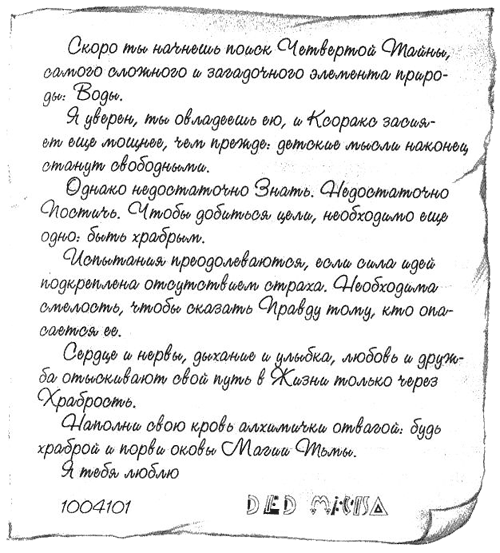 Скоро ты начнешь поиск Четвертой Тайны,
самого сложного и загадочного элемента приро-
ды: Воды.
Я уверен, ты овладеешь ею, и Ксоракс засия-
ет еще мощнее, чем прежде: детские мысли наконец
станут свободными.
Однако недостаточно Знать. Недостаточно
Постичь. Чтобы добиться цели, необходимо еще
одно: быть храбрым.
Испытания преодолеваются, если сила идей
подкреплена отсутствием страха. Необходима
смелость, чтобы сказать Правду тому, кто опа-
сается ее.
Сердце и нервы, дыхание и улыбка, любовь и друж-
ба отыскивают свой путь в Жизни только через
Храбрость.
Наполни свою кровь алхимички отвагой: будь
храброй и порви оковы Магии Тьмы.
Я тебя люблю
1004101 DED МИША